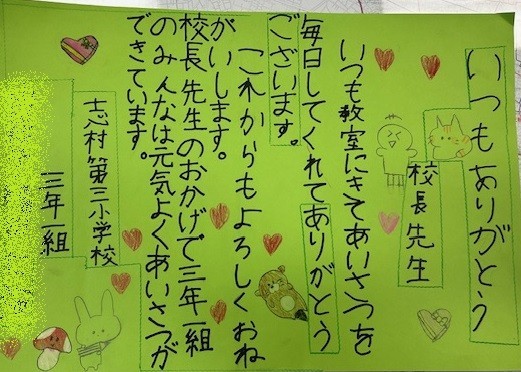 いつもありがとう
校長先生
いつも教室にきてあいさつを
毎日してくれてありがとう
ございます。
これからもよろしくおね
がいします。
校長先生のおかげで三年一組
のみんなは元気よくあいさつが
できています。
志村第三小学校
三年一組